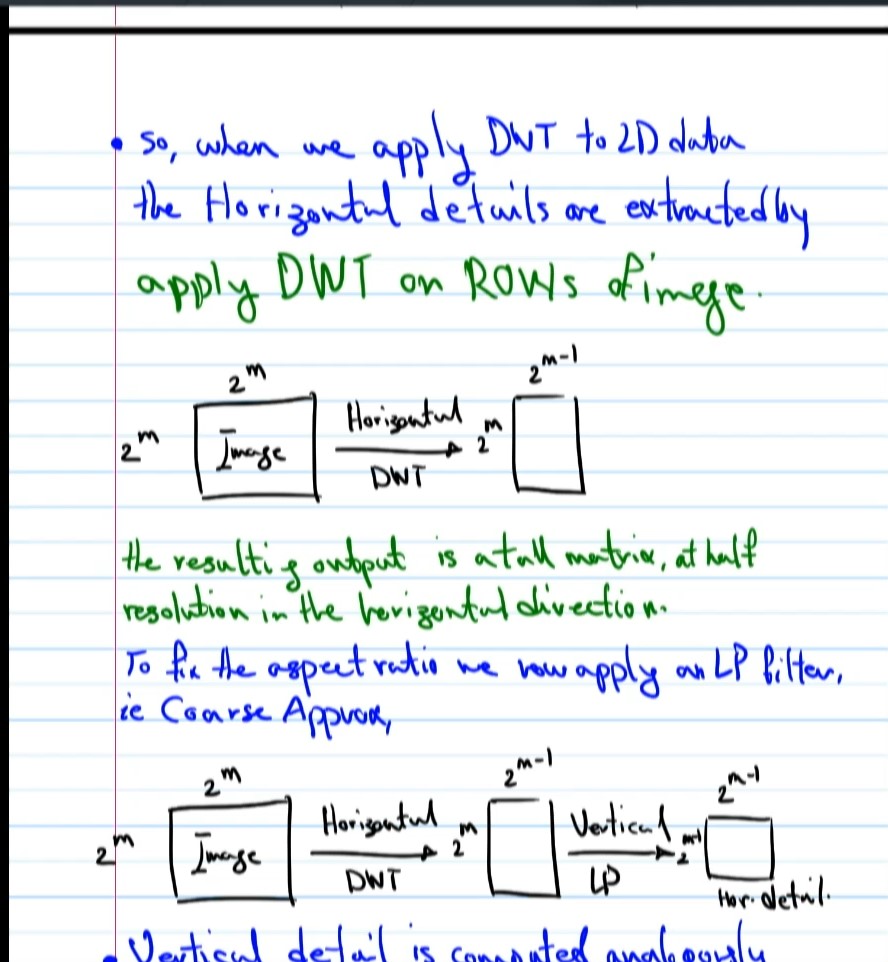 • so, when we apply DWT to 2D data
the Horizontal details are extracted by
apply DWT on ROWs of image.
2^m 2^{m-1}
2^m Image Horizontal DWT 2^m
the resulting output is a tall matrix, at half
resolution in the horizontal direction.
To fix the aspect ratio we now apply an LP filter,
ie Coarse Approx,
2^m 2^{m-1} 2^{m-1}
2^m Image Horizontal DWT 2^m Vertical LP 2^{m-1}
Hor. detail.
• Vertical detail is computed analogously